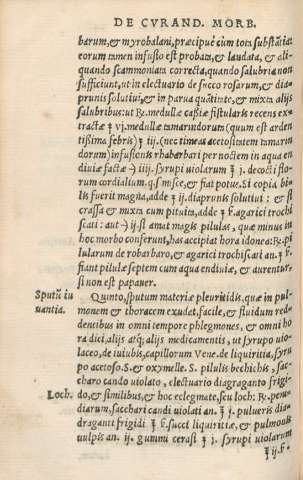 DE CVRAND. MORB.
barum, & myrobalani, præcipuè cùm tota substātia:
eorum tamen infusio est probata, & laudata, & ali-
quando scammoniata correcta, quando salubria non
sufficiunt, ut in electuario de succo rosarum, & dia-
prunis solutiui, & in parua quātitate, & mixta alijs
salubribus: ut ℞. medullæ caßiæ fistularis recens ex-
tractæ ℥ vj. medullæ tamarindorum (quum est arden
tißima febris) ℥ iij. (nec timeas acetositatem tamarin
dorum) infusionis rhabarbari per noctem in aqua en
diuiæ factæ ʒ iiij. syrupi uiolarum ℥ j. decocti flo-
rum cordialium. q. s. misce, & fiat potus. Si copia bi-
lis fuerit magna, adde ʒ ij. diaprunis solutiui: & si
crassa & mixta cum pituita, adde ʒ ß. agarici trochi
scati: aut ʒ ij. si amat magis pilulas, quæ minus in
hoc morbo conferunt, has accipiat hora idonea: ℞. pi
lularum de robarbaro, & agarici trochiscati an. ʒ ß.
fiant pilulæ septem cum aqua endiuiæ, & aurentur
si non est pauper.
Sputū iu
uantia.
Quinto, sputum materiæ pleuritidis, quæ in pul-
monem & thoracem exudat, facile, & fluidum red-
dentibus in omni tempore phlegmones, & omni ho
ra dici, alijs atq; alijs medicamentis, ut syrupo uio-
laceo, de iuiubis, capillorum Vene. de liquiritia, syru
po acetoso. S. & oxymelle. S. pilulis bechichis, sac-
charo cando uiolato, electuario diagraganto frigi-
Loch.
do, & similibus, & hoc eclegmate, seu loch: ℞. peni
diarum, sacchari candi uiolati an. ℥ j. pulueris dia-
draganti frigidi ℥ ß. succi liquiritiæ, & pulmonis
uulpis an. ij. gummi cerasi ℥ j. syrupi uiolarum
℥ ij. ß.